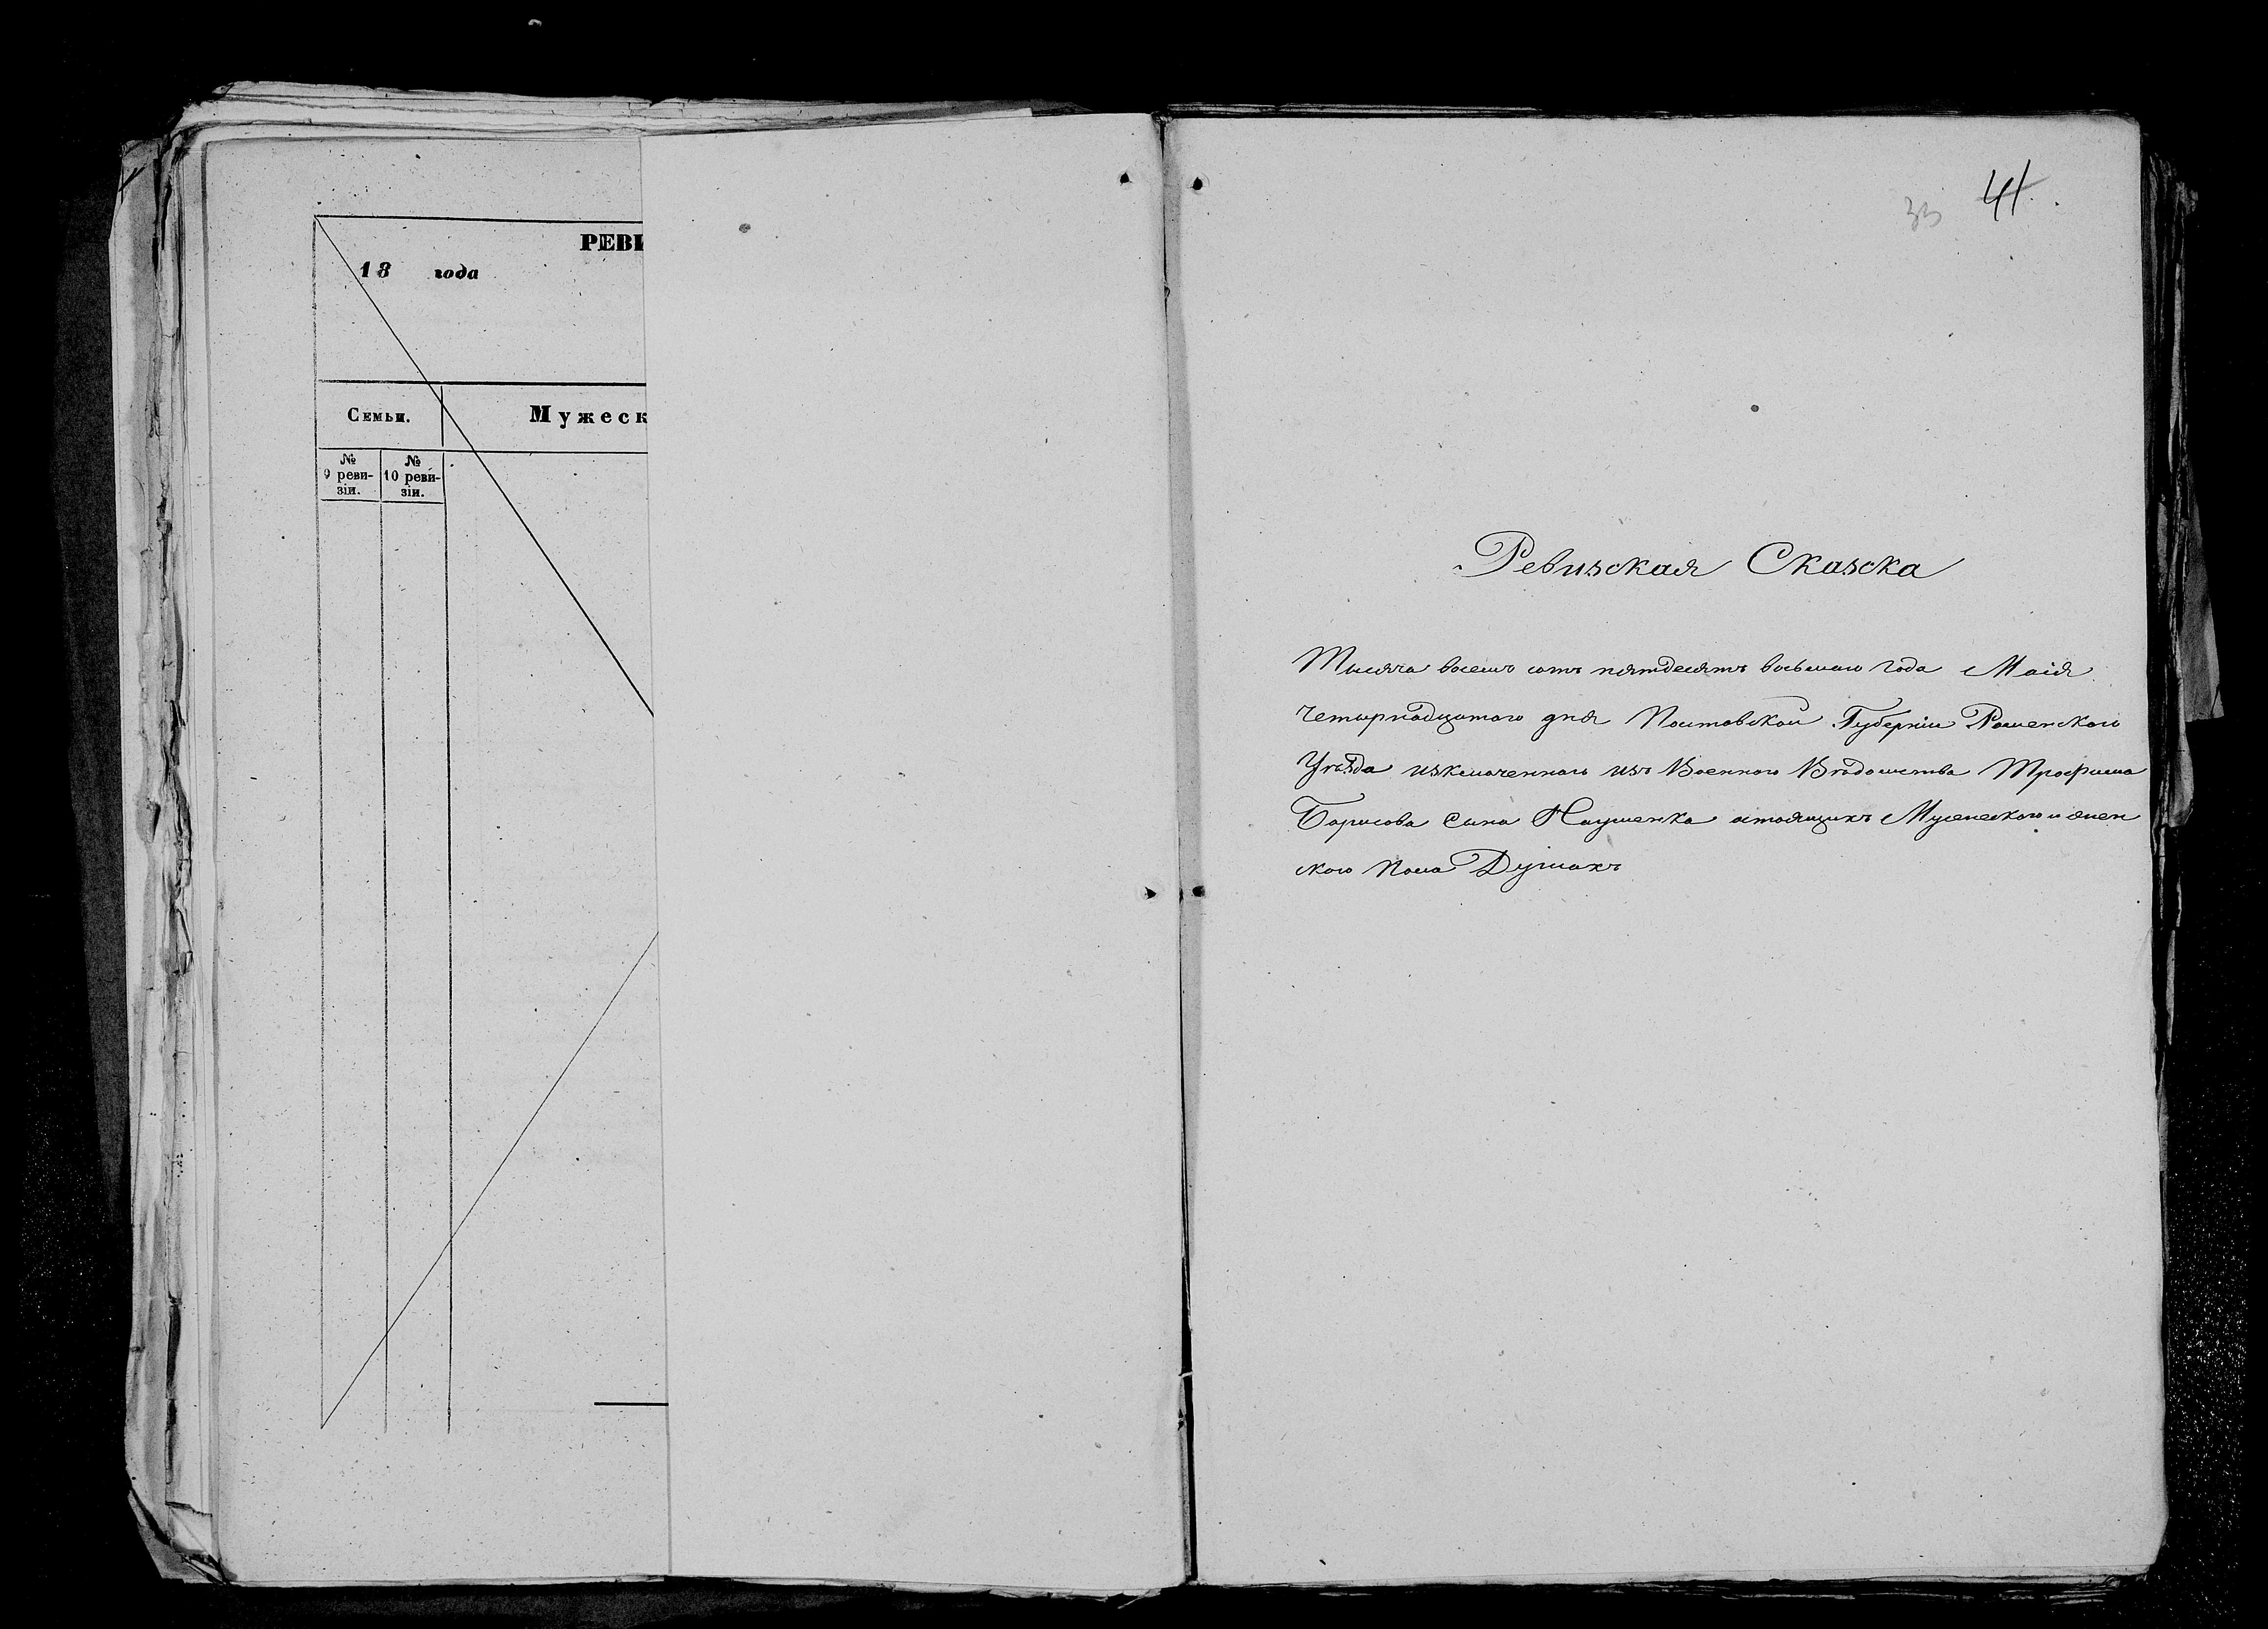 РЕВИ
18 года
Семьи.
Мужеск
№
9 реви-
зіи.
№
10 реви-
зіи.
33 41.
Ревизская Сказка
Тысяча восемъ сотъ пятдесятъ восьмаго года Маія
четырнадцатого дня Полтавской Губерніи Роменского
Уѣзда изключенного изъ Военного Вѣдомства Трофима
Борисова сына Наушенка остоящихъ Мужеского и женс
ского пола Душахъ